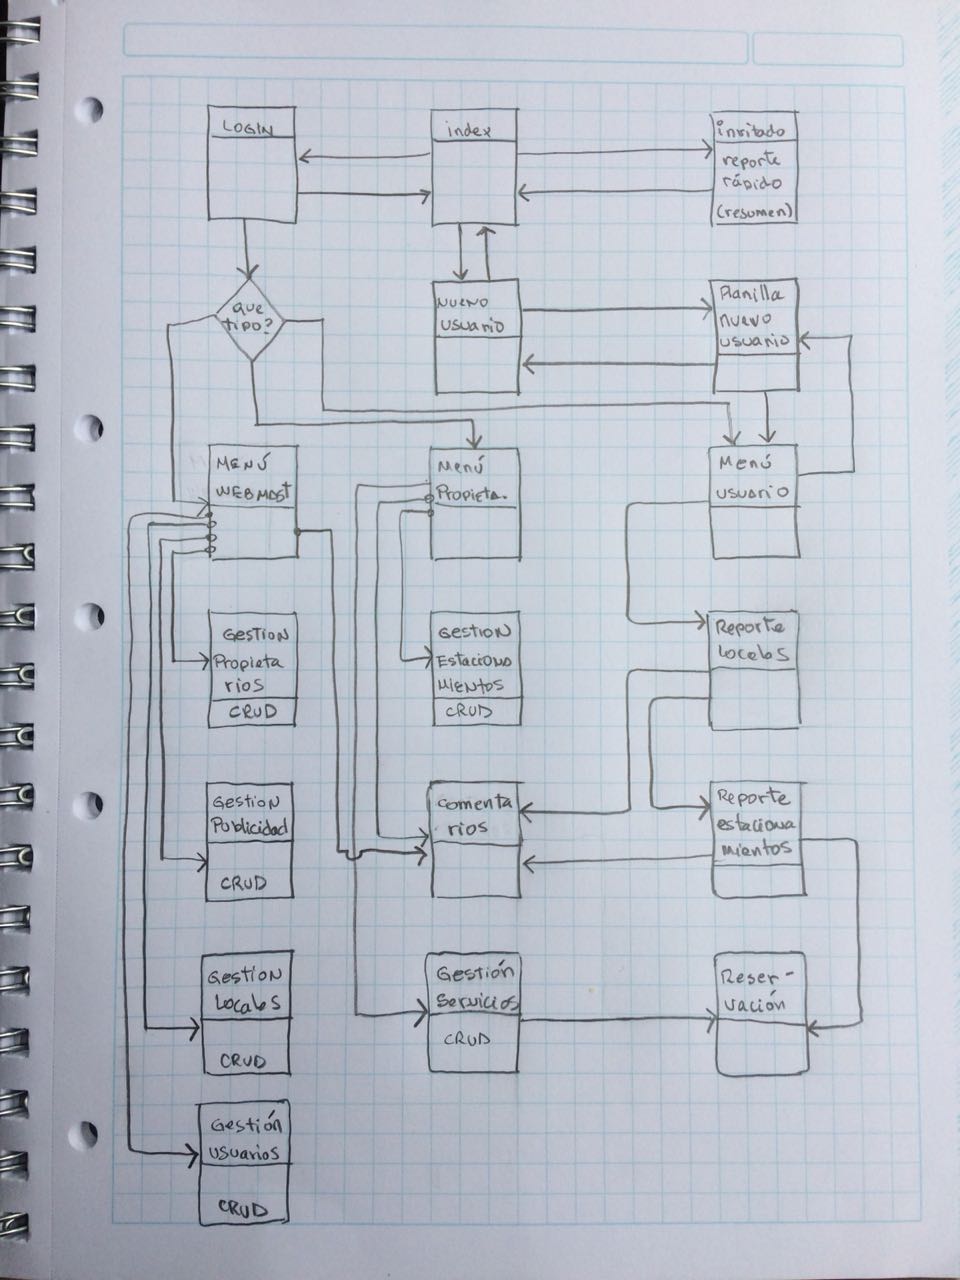 LOGIN
index
invitado
reporte
rápido
(resumen)
que
tipo?
NUEVO
USUARIO
Planilla
NUEVO
USUARIO
MENÚ
WEBMAST
Menú
Propieta.
Menú
USUARIO
GESTION
Propieta
rios
CRUD
GESTION
Estaciona
Mientos
CRUD
Reporte
Locales
Gestion
Publicidad
CRUD
Comenta
rios
Reporte
estaciona
mientos
Gestion
Locales
CRUD
Gestión
Servicios
CRUD
Reser-
vación
Gestión
usuarios
CRUD